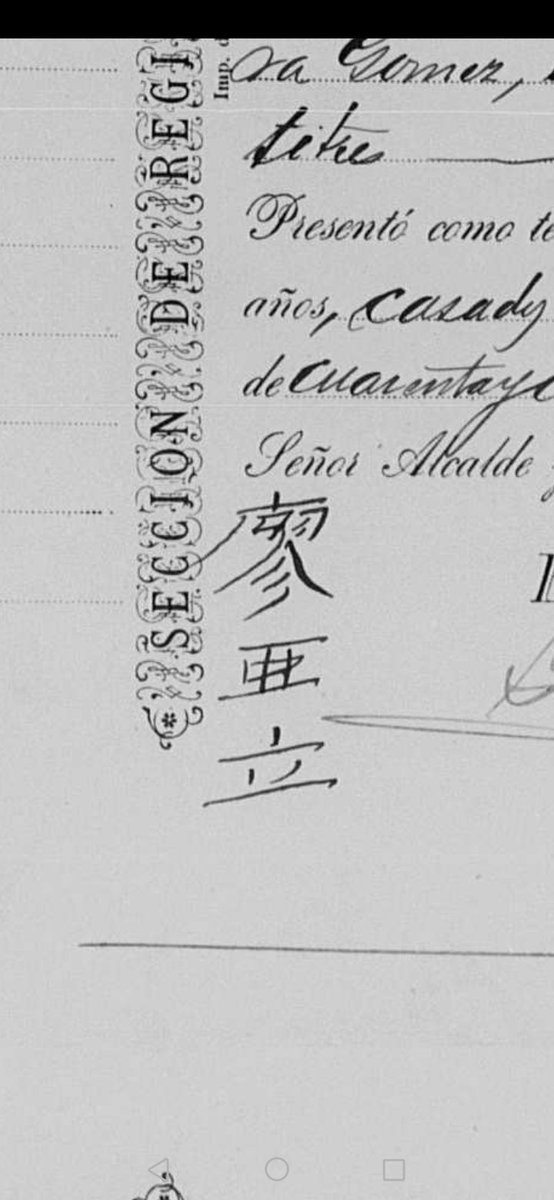 SECCION DE REGI
Imp. d
sa Gomez,
titres
Presentó como te
años, casado
de cuarentayc
Señor Alcalde y
廖
亜
立